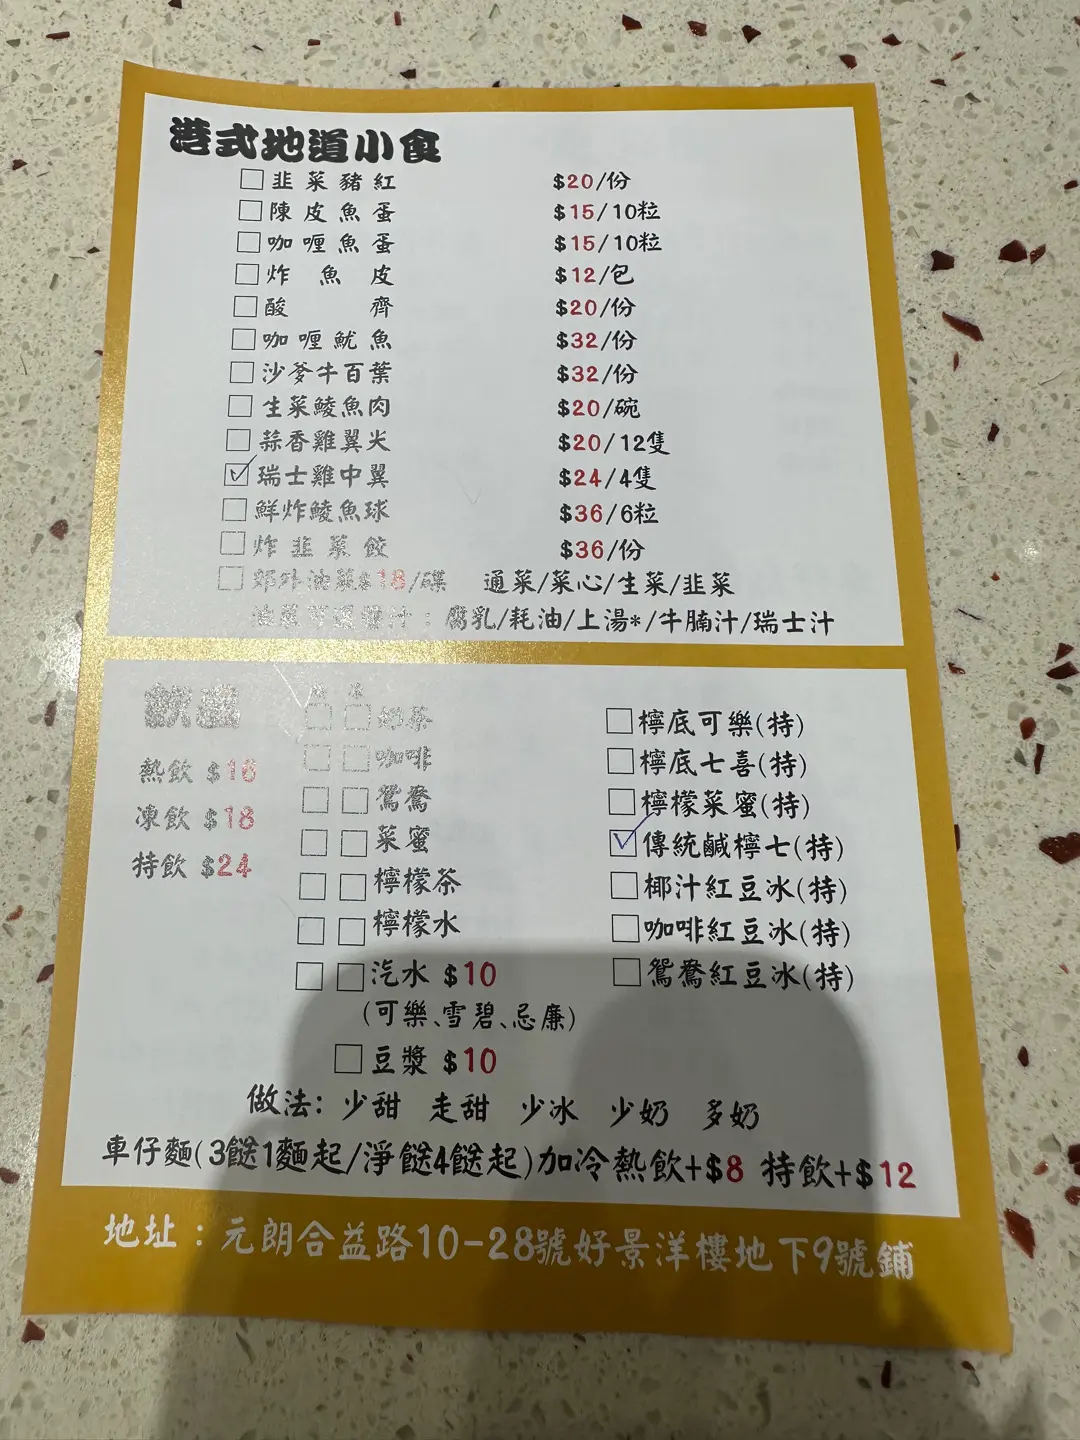 港式地道小食
韭菜豬紅 $20/份
陳皮魚蛋 $15/10粒
咖喱魚蛋 $15/10粒
炸魚皮 $12/包
酸齊 $20/份
咖喱魷魚 $32/份
沙爹牛百葉 $32/份
生菜鯪魚肉 $20/碗
蒜香雞翼尖 $20/12隻
瑞士雞中翼 $24/4隻
鮮炸鯪魚球 $36/6粒
炸韭菜餃 $36/份
郊外油菜$18/碟 通菜/菜心/生菜/韭菜
油菜可選醬汁：腐乳/耗油/上湯*/牛腩汁/瑞士汁
飲品
熱飲 $16
凍飲 $18
特飲 $24
奶茶
咖啡
鴛鴦
菜蜜
檸檬茶
檸檬水
汽水 $10
(可樂、雪碧、忌廉)
豆漿 $10
檸底可樂(特)
檸底七喜(特)
檸檬菜蜜(特)
傳統鹹檸七(特)
椰汁紅豆冰(特)
咖啡紅豆冰(特)
鴛鴦紅豆冰(特)
做法: 少甜 走甜 少冰 少奶 多奶
車仔麵(3餸1麵起/淨餸4餸起)加冷熱飲+$8 特飲+$12
地址：元朗合益路10-28號好景洋樓地下9號鋪